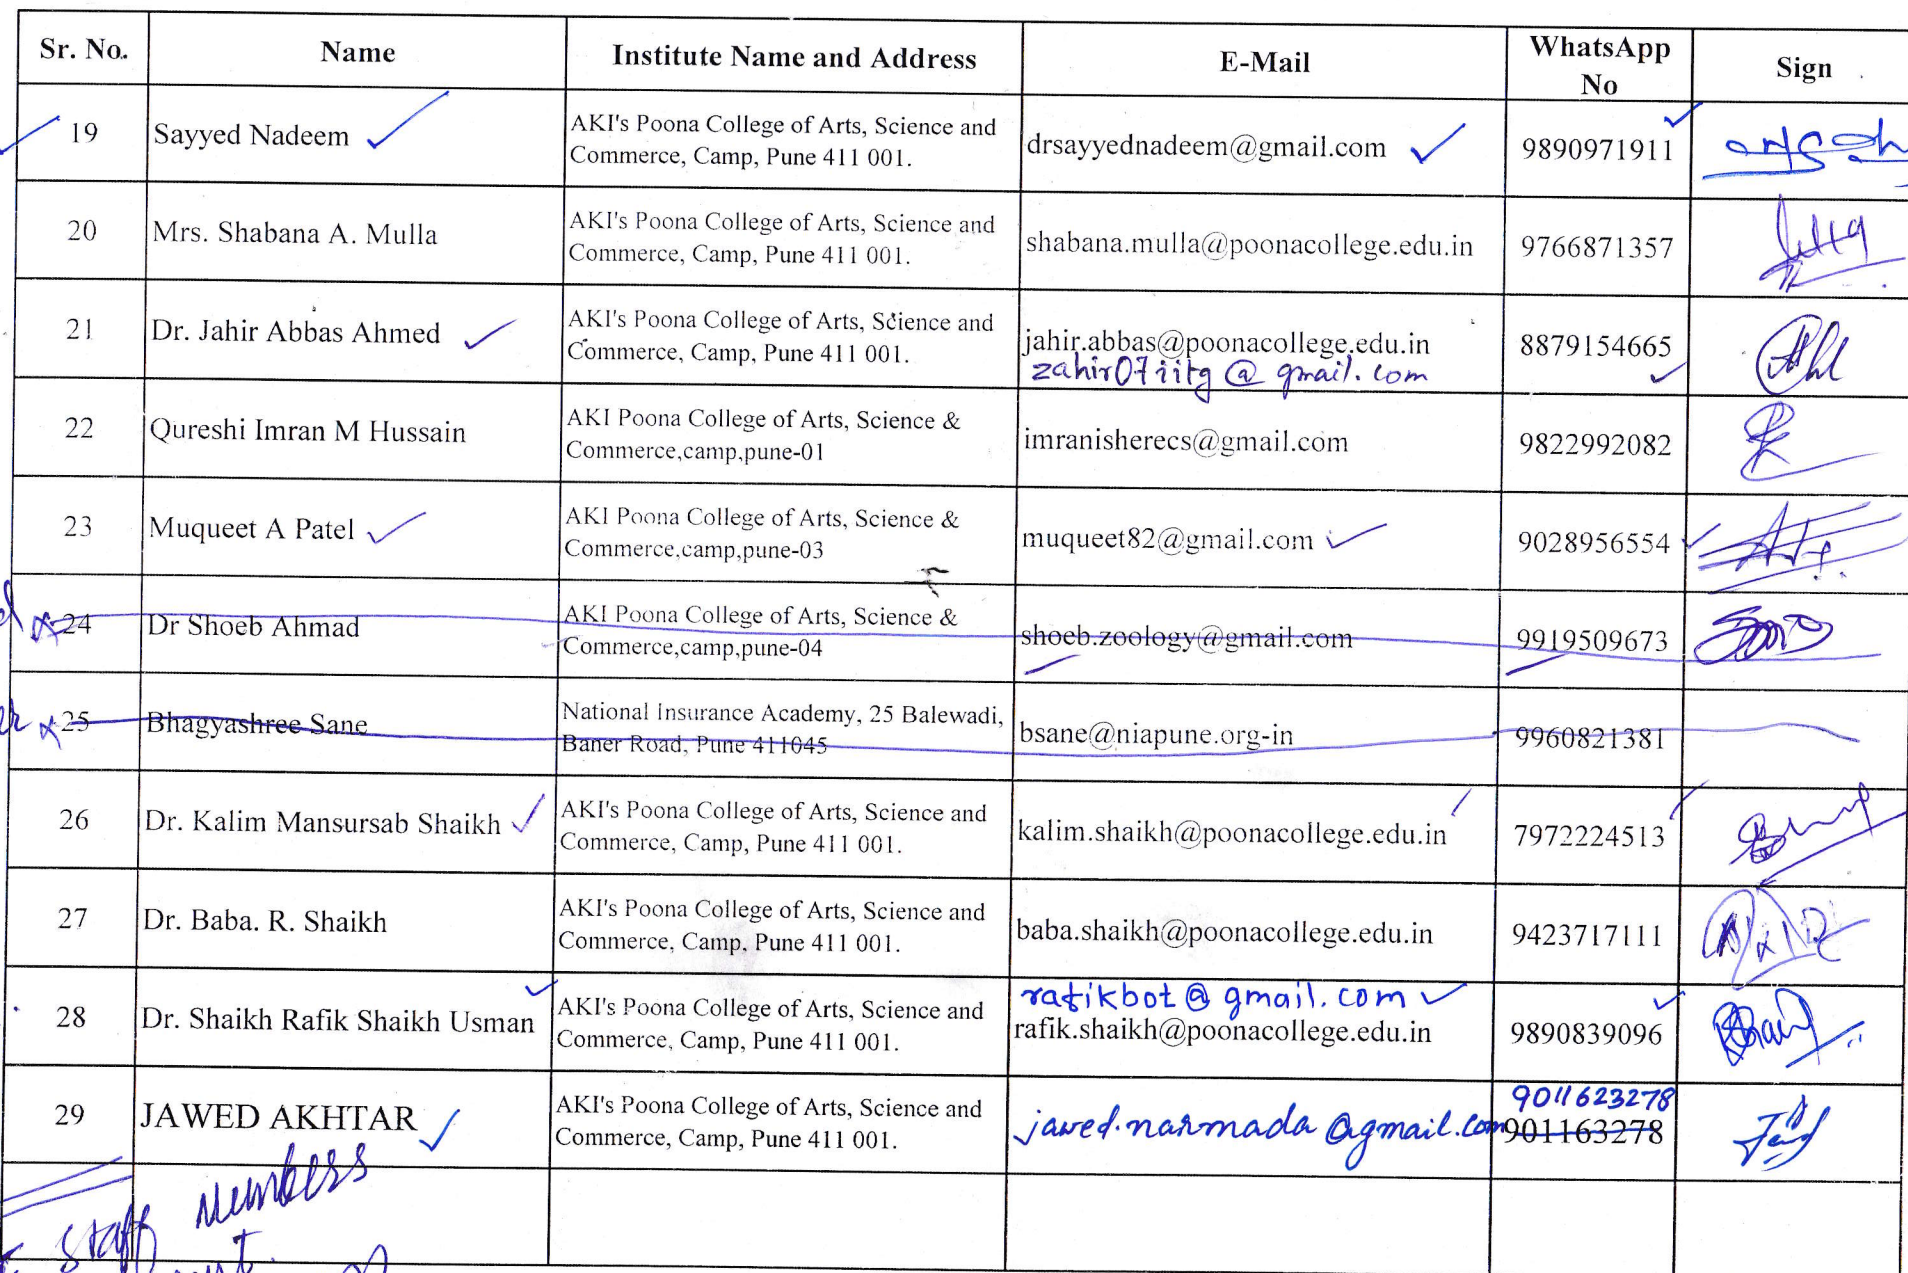 Sr. No. Name Institute Name and Address E-Mail WhatsApp No Sign
19 Sayyed Nadeem AKI's Poona College of Arts, Science and Commerce, Camp, Pune 411 001. drsayyednadeem@gmail.com 9890971911
20 Mrs. Shabana A. Mulla AKI's Poona College of Arts, Science and Commerce, Camp, Pune 411 001. shabana.mulla@poonacollege.edu.in 9766871357
21 Dr. Jahir Abbas Ahmed AKI's Poona College of Arts, Science and Commerce, Camp, Pune 411 001. jahir.abbas@poonacollege.edu.in 8879154665
zahir07iitg@gmail.com
22 Qureshi Imran M Hussain AKI Poona College of Arts, Science & Commerce,camp,pune-01 imranisherecs@gmail.com 9822992082
23 Muqueet A Patel AKI Poona College of Arts, Science & Commerce,camp,pune-03 muqueet82@gmail.com 9028956554
24 Dr Shoeb Ahmad AKI Poona College of Arts, Science & Commerce,camp,pune-04 shoeb.zoology@gmail.com 9919509673
25 Bhagyashree Sane National Insurance Academy, 25 Balewadi, Baner Road, Pune 411045 bsane@niapune.org-in 9960821381
26 Dr. Kalim Mansursab Shaikh AKI's Poona College of Arts, Science and Commerce, Camp, Pune 411 001. kalim.shaikh@poonacollege.edu.in 7972224513
27 Dr. Baba. R. Shaikh AKI's Poona College of Arts, Science and Commerce, Camp, Pune 411 001. baba.shaikh@poonacollege.edu.in 9423717111
rafikbot@gmail.com
28 Dr. Shaikh Rafik Shaikh Usman AKI's Poona College of Arts, Science and Commerce, Camp, Pune 411 001. rafik.shaikh@poonacollege.edu.in 9890839096
9011623278
29 JAWED AKHTAR AKI's Poona College of Arts, Science and Commerce, Camp, Pune 411 001. jawed.narmada@gmail.com 901163278
Staff Members